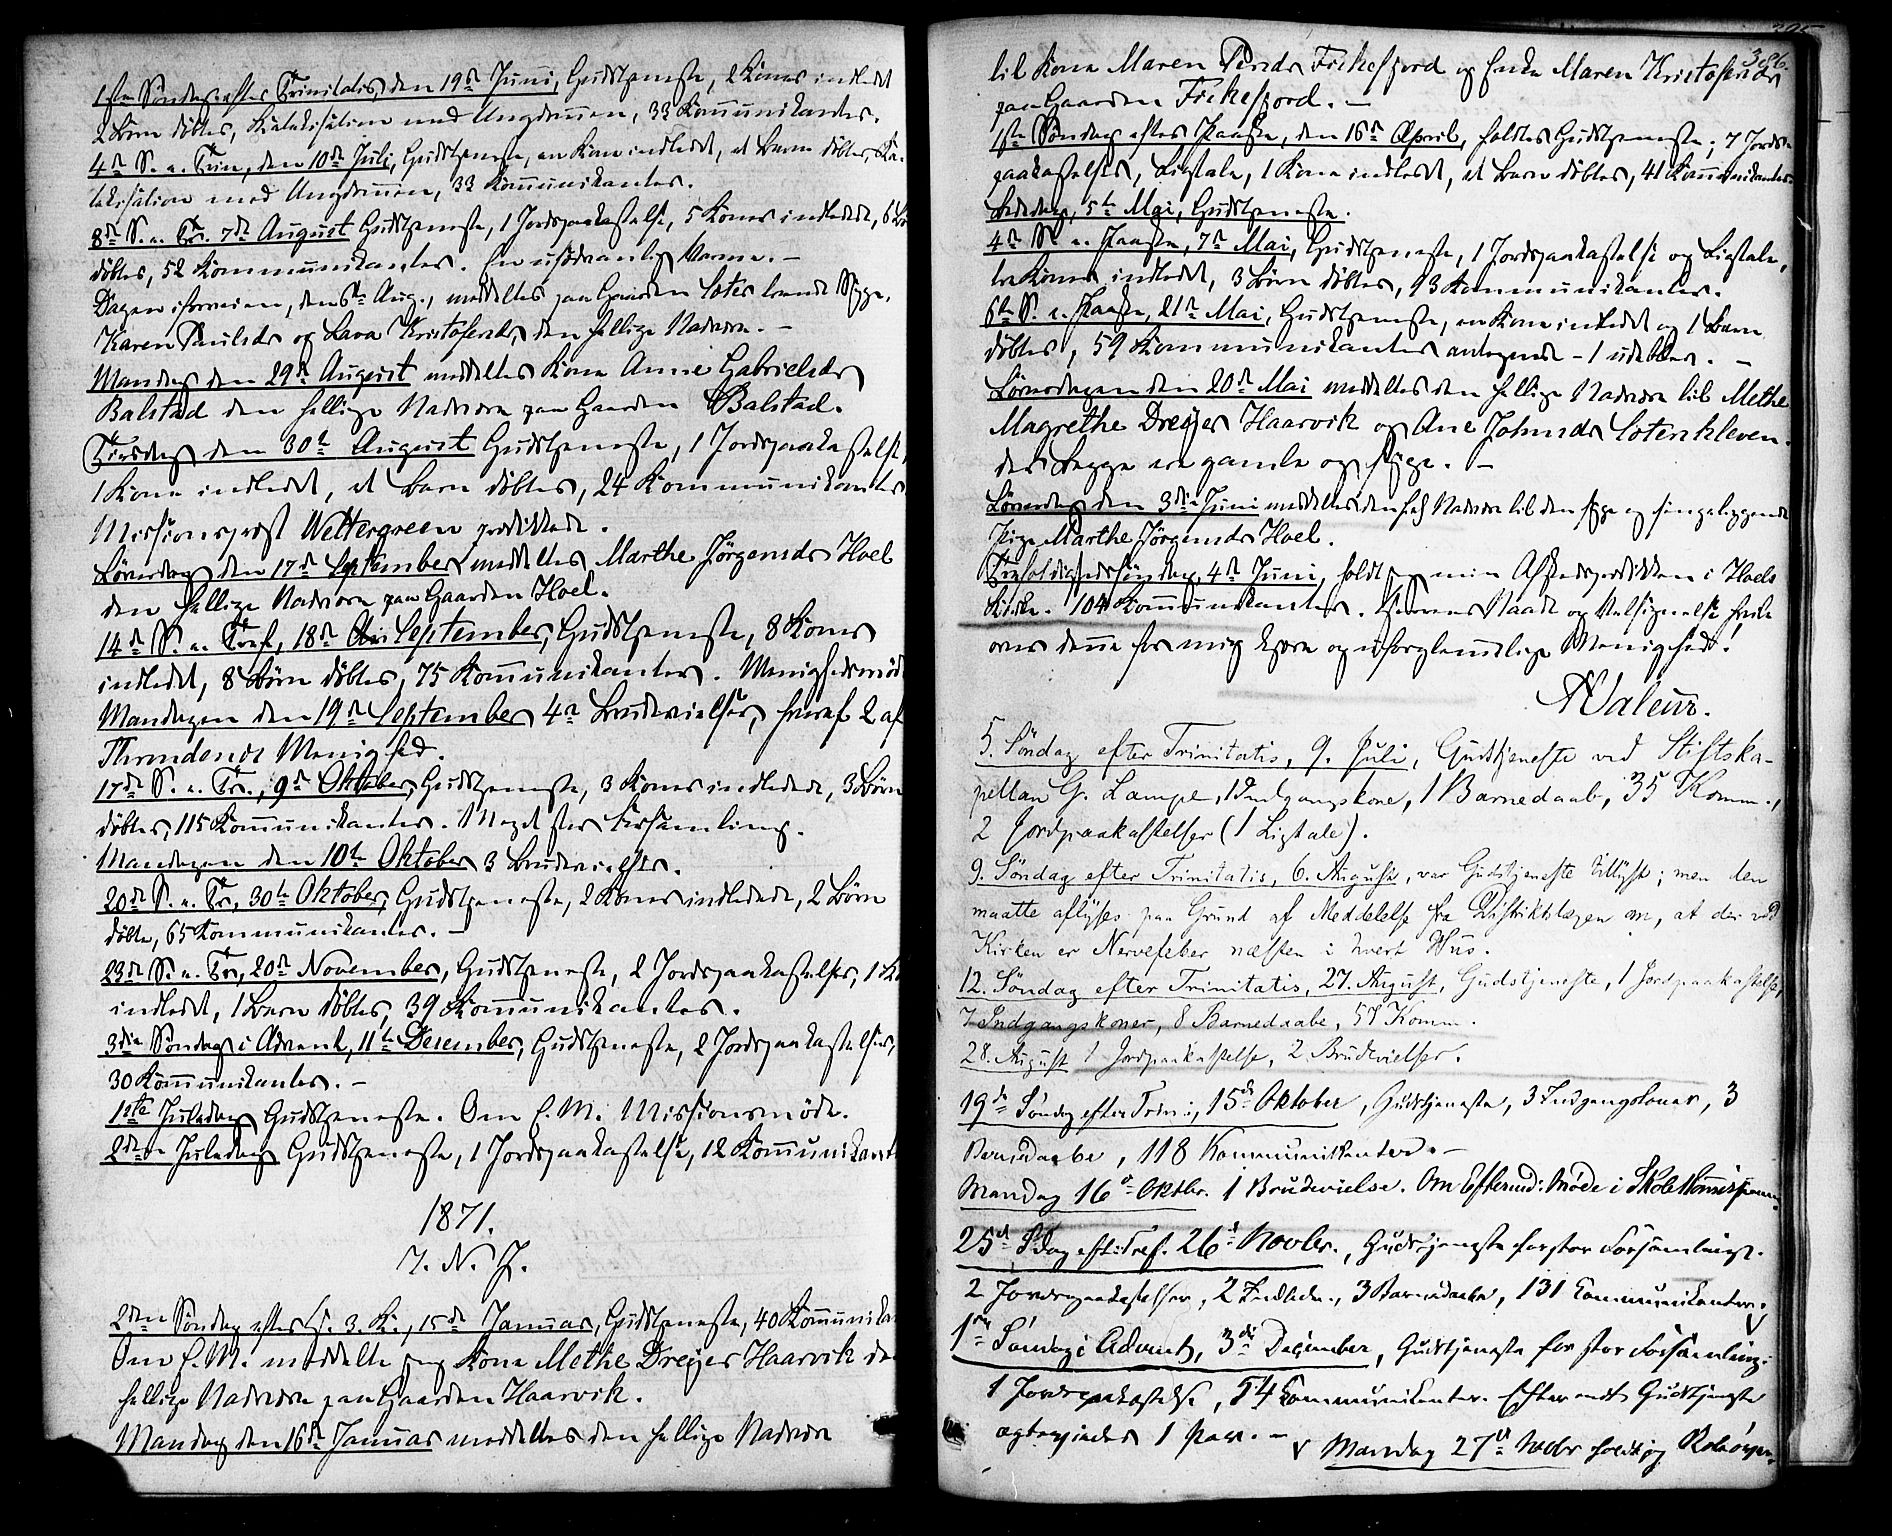 1ste Søndag efter Trinitatis, den 19de Juni, Gudstjeneste, 2 Koner indledet
2 Børn døbtes, Katekisation med Ungdommen, 33 Kommunikantes.
4de S. e. Trin, den 10de Juli, Gudstjeneste, en Kone indledet, et Barn døbtes, Ka-
tekisation med Ungdommen, 33 Kommunikantes.
8de S. e. Tr. 7de August Gudstjeneste, 1 Jordpaakastelse, 5 Koner indledede, 6 Bø
døbtes, 52 Kommunikantes. En usædvanlig Varme. –
Dagen iforveien, den 6te Aug., meddeltes paa Gaarden Soter tvende Syge,
Karen Paulsdr og Lava Kristofersdr, den hellige Nadvere. –
Mandag den 29de August meddeltes Kone Anne Gabrielsdr
Balstad den hellige Nadvere paa Gaarden Balstad.
Tirsdag den 30te August Gudstjeneste, 1 Jordpaakastelse,
1 Kone indledet, et Barn døbtes, 24 Kommunikantes
Missionsprest Wettergreen prædikede.
Løverdag den 17de September meddeltes Marthe Jørgensdr Hoel
den hellige Nadvere paa Gaarden Hoel.
14de S. e. Tref, 18de September, Gudstjeneste, 8 Koner
indledet, 8 Børn døbtes, 75 Kommunikantes. Menighedsmød
Mandagen den 19de September 4re Brudevielser, hvoraf 2 af
Throndenes Menighed.
17de S. e. Tr., 9de Oktober, Gudstjeneste, 3 Koner indledede, 3 Børn
døbtes, 115 Kommunikantes. Meget stor Forsamling.
Mandagen den 10de Oktober 3 Brudevielser.
20de S. e. Tr, 30te Oktober, Gudstjeneste, 2 Koner indledede, 2 Børn
døbte, 65 Kommunikantes. –
23de S. e. Tr, 20de November, Gudstjeneste, 2 Jordpaakastelser, 1 K
indledet, 1 Barn døbtes, 39 Kommunikantes.
3die Søndag i Advent, 11te Desember, Gudstjeneste, 2 Jordpaakastelser,
30 Kommunikantes. –
1ste Juledag Gudstjeneste. Om E. M. Missionsmøde.
2den Juledag Gudstjeneste, 1 Jordpaakastelse, 12 Kommunikant
1871.
I. N. J.
2den Søndag efter H. 3. K., 15de Januar, Gudstjeneste, 40 Kommunika
Om E. M. meddelte jeg Kone Methe Dreyer Haarvik de
hellige Nadvere paa Gaarden Haarvik.
Mandag den 16de Januar meddeltes den hellige Nadvere
396.
til Kone Maren Fiskefjord og Enke Maren Kristofersdr
paa Gaarden Fiskefjord. –
1ste Søndag efter Paaske, den 16de April, holdtes Gudstjeneste; 7 Jords-
paakastelser, Ligtale, 1 Kone indledet, et Barn døbtes, 41 Kommunikantes.
Bededag, 5te Mai, Gudstjeneste.
4de S. e. Paaske, 7de Mai, Gudstjeneste, 1 Jordpaakastelse og Ligtale,
tre Koner indledet, 3 Børn døbtes, 93 Kommunikantes.
6te S. e. Paaske, 21de Mai, Gudstjeneste, en Kone indledet og 1 Barn
døbtes, 59 Kommunikantes antegnede – 1 udeblev. –
Løverdagen den 20de Mai meddeltes den hellige Nadvere til Methe
Magrethe Dreyer Haarvik og Ane Johnsdr Soterkleven
der begge ere gamle og syge. –
Løverdag den 3die Juni meddeltes den hel Nadvere til den syge og sengeliggende
Pige Marthe Jørgensdr Hoel.
Trefoldighedssøndag, 4de Juni, holdt jeg min Afskedsprædiken i Hoels
Kirke. 104 Kommunikantes. Herrens Naade og Velsignelse hvile
over denne for mig kjære og uforglemmelige Menighed!
Valeur.
5. Søndag efter Trinitatis, 9. Juli, Gudstjeneste ved Stiftska-
pellan G. Lampe, 1 Indgangskone, 1 Barnedaab, 35 Komm.,
2 Jordpaakastelser (1 Ligtale).
9. Søndag efter Trinitatis, 6. August, var Gudstjeneste tillyst; men den
maatte aflyses paa Grund af Meddelelse fra Distriktslægen om, at der ved
Kirken er Nervefeber næsten i hvert Hus.
12. Søndag efter Trinitatis, 27. August, Gudstjeneste, 1 Jordpaakastelse,
7 Indgangskoner, 8 Barnedaabe, 57 Komm.
28. August 1 Jordpaakastelse, 2 Brudevielser.
19de Søndag efter Trin:, 15de Oktober, Gudstjeneste, 3 Indgangskoner, 3
Barnedaabe, 118 Kommunikanter. –
Mandag 16de Oktbr. 1 Brudevielse. Om Efterm: Møde i
25de Sdag eft: Tref. 26de Novbr., Gudstjeneste for stor Forsamling.
2 Jordpaakastelser, 2 Indled., 3 Barnedaabe, 131 Kommunikanter. V
1ste Søndag i Advent, 3die December, Gudstjeneste for stor Forsamling:
1 Jordpaakastelse, 54 Kommunikanter. Efter endt Gudstjeneste
ægteviedes 1 Par. –
V Mandag 27de Novbr holdt jeg